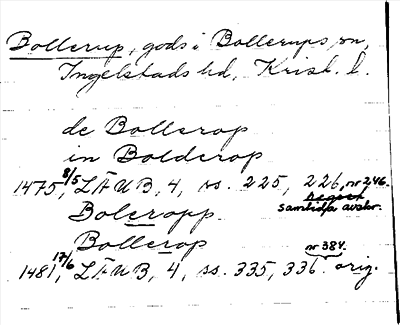 Bollerup, gods i Bollerups sn,
Ingelstads hd, Krist. l.
de Bollerop
in Bolderop
1475 8/5, LÄUB, 4, ss. 225, 226, nr 246.
samtidja avskr.
Boleropp.
Bollerop
1481 17/6, LÄUB, 4, ss. 335, 336. nr 384. orig.